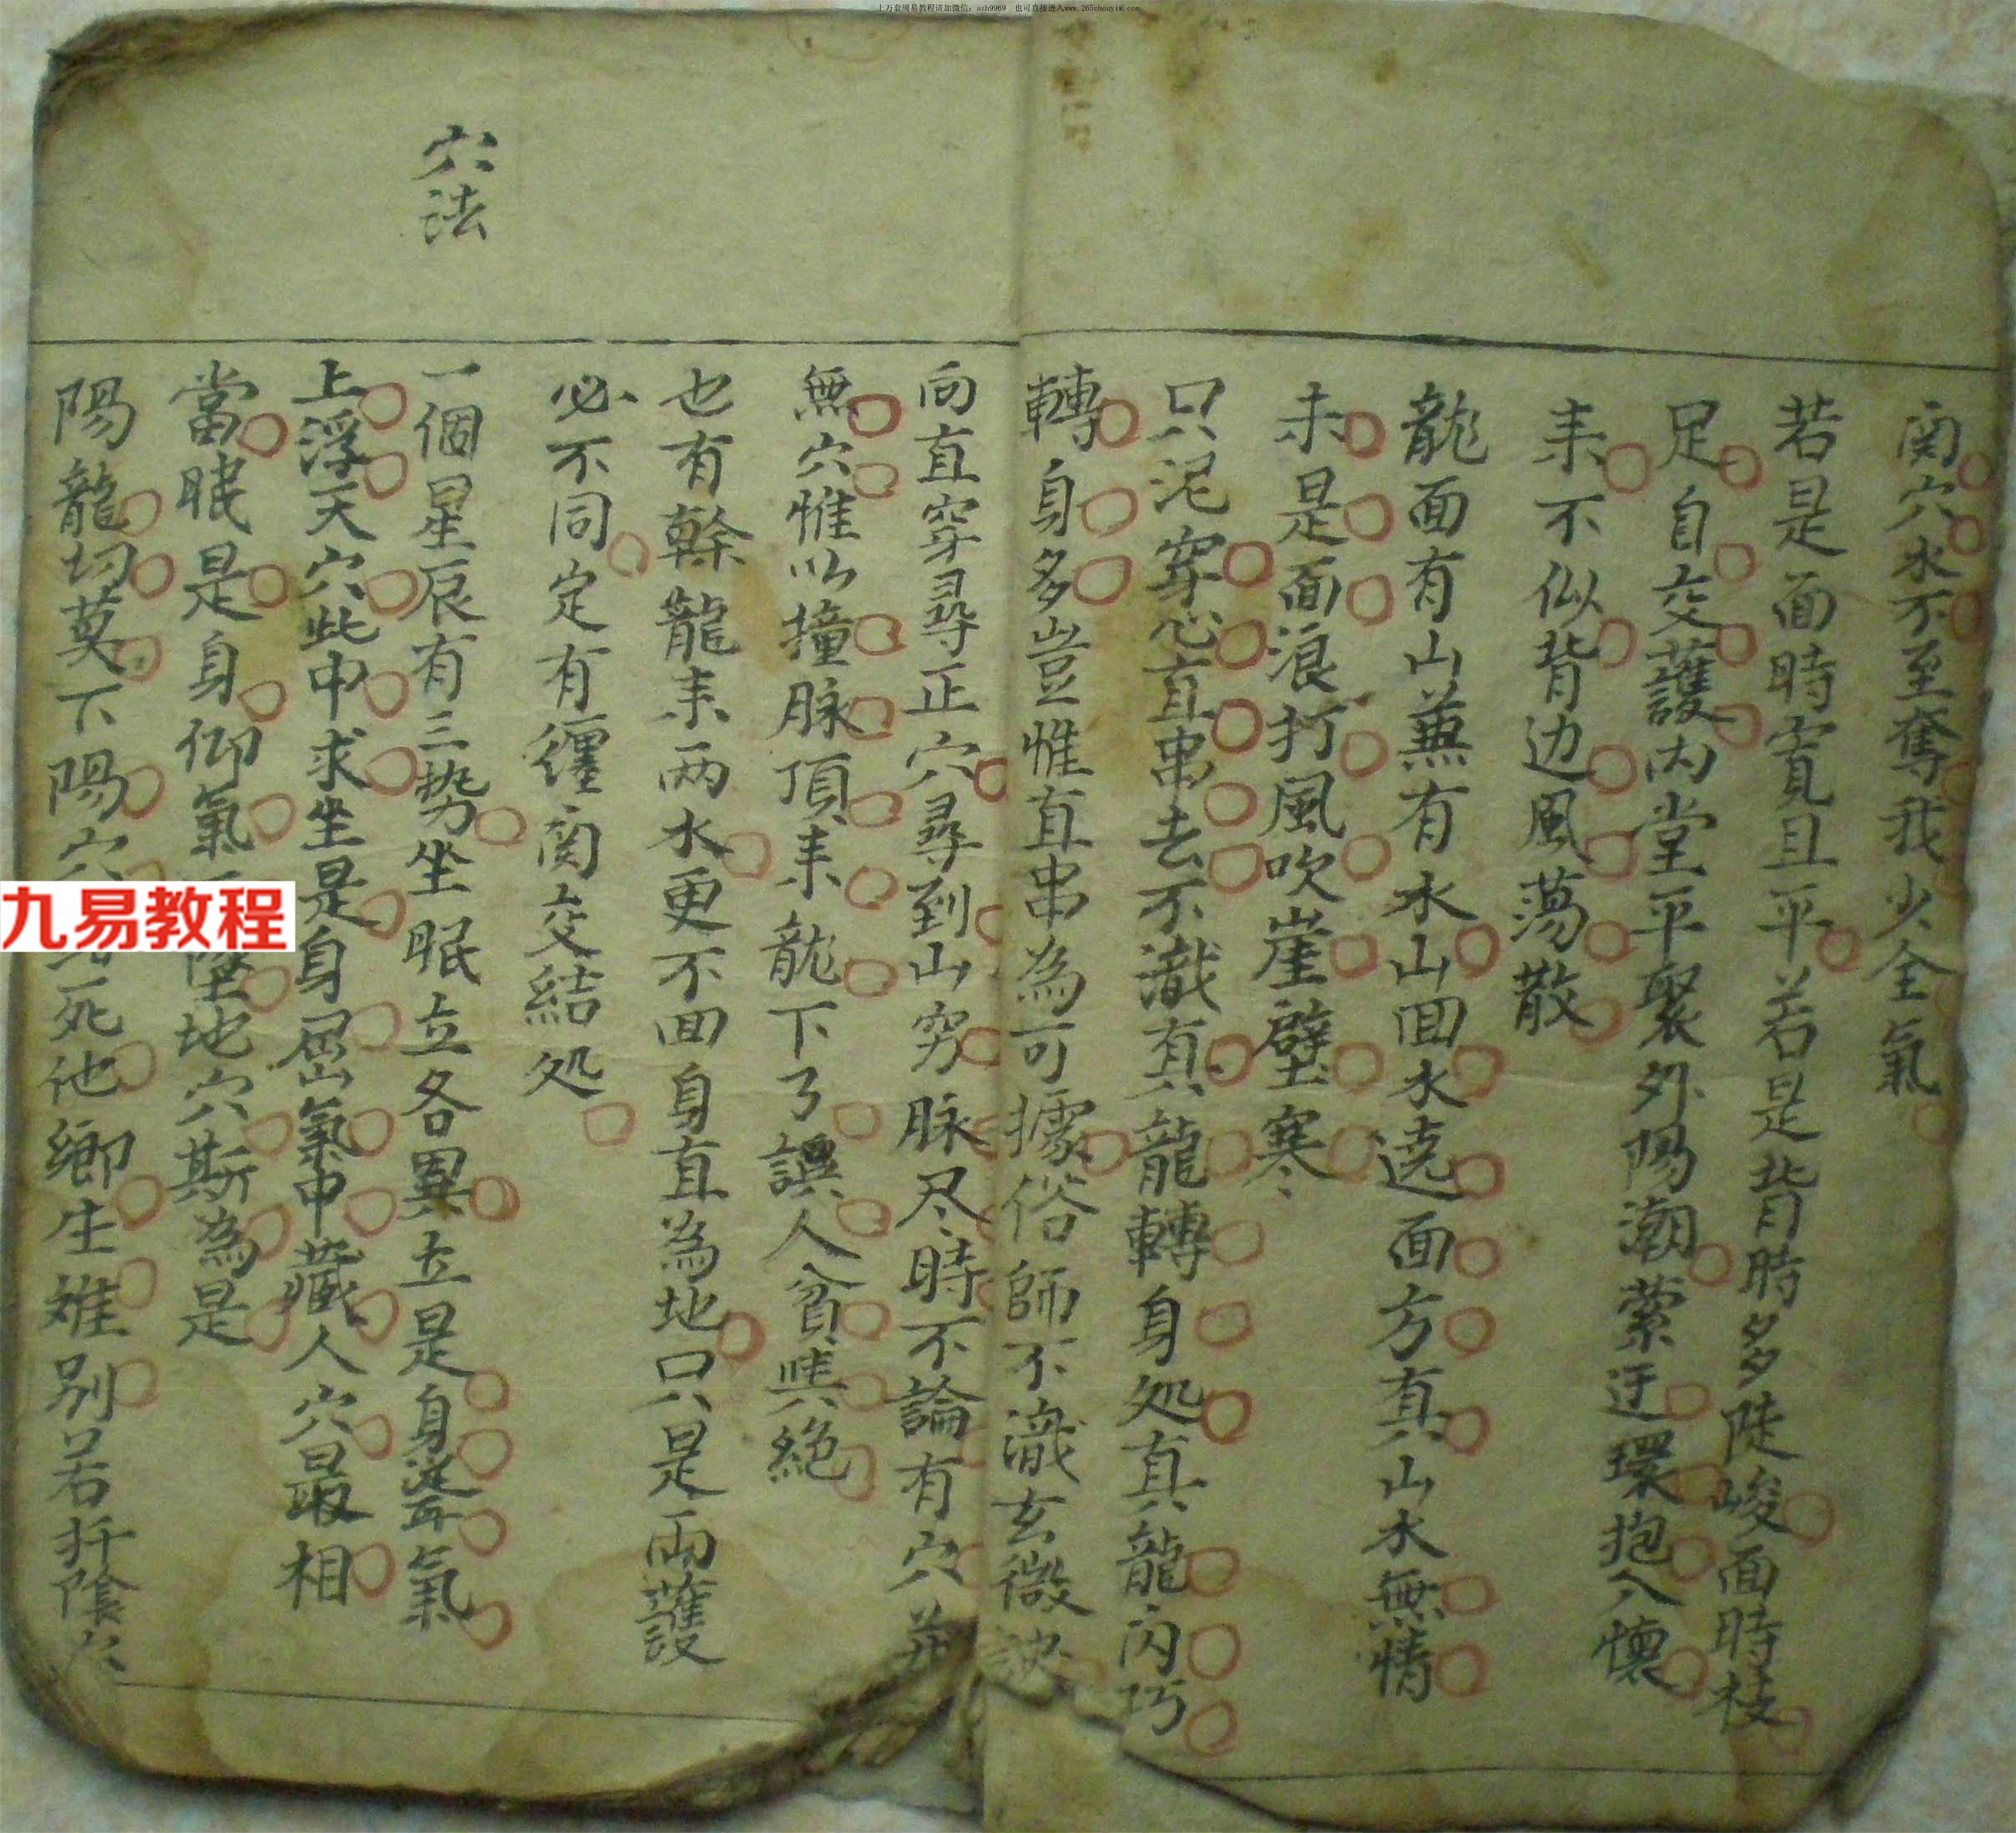 上万套周易教程请加微信：azh9969 也可直接进入www.265zhouyiw.com
穴水不至奪我少全氣
若是面時寬且平若是背時多陡峻面時枝
足自交護内堂平聚外陽潮縈迂環抱入懷
来不似背边風蕩散
龍面有山無有水山回水遶面方真山水無情
未是面浪打風吹崖壁寒
只泥穿心直串去不識真龍轉身処真龍内巧
轉身多豈惟直串為可據俗師不識玄微訣
向直穿尋正穴尋到山穷脉尽時不論有穴并
無穴惟以撞脉頂来龍下了誤人貧與絶
也有幹龍来两水更不回身直為地只是两護
必不同定有纏交結処
穴法
一個星辰有三势坐眠立各異立是身聳氣
上浮天穴此中求坐是身屈氣中藏人穴最相
當眠是身仰氣墜地穴斯為是
陽龍切莫下陽穴死他鄉生難别若扦陰
九易教程